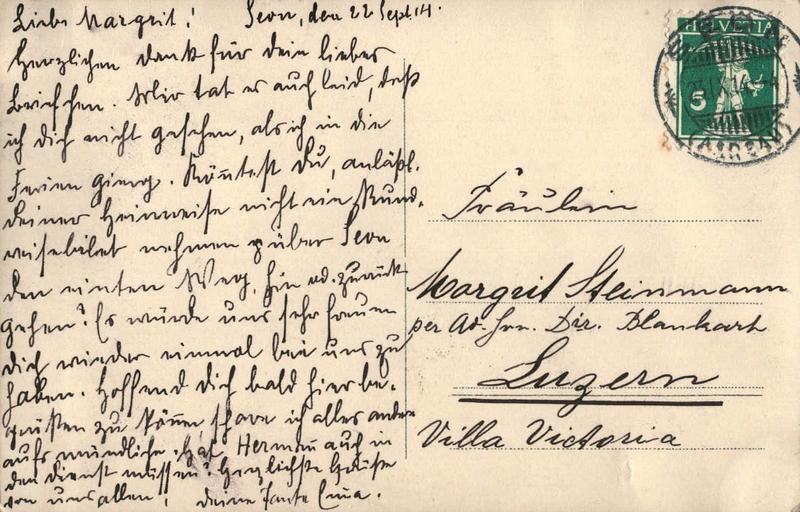 Liebe Margrit! Seon, den 22. Sept. 14.
Herzlichen Dank für dein liebes
Briefchen. Mir tat es auch leid, daß
ich dich nicht gesehen, als ich in die
Ferien gieng. Könntest Du, anläßl.
deiner Heimreise nicht ein Rund-
reisebilet nehmen & über Seon
den einten Weg, hin od. zurück
gehen? Es würde uns sehr freuen
dich wieder einmal bei uns zu
haben. Hoffend dich bald hier be-
grüßen zu können spare ich alles andere
aufs mündliche. Hat Hermann auch in
den Dienst müssen? Herzlichste Grüße
von uns allen! deine Tante
HELVETIA
5
(AARGAU)
Fräulein
Margrit Steinmann
per Ad. Hrn. Dir. Blankart
Luzern
Villa Victoria